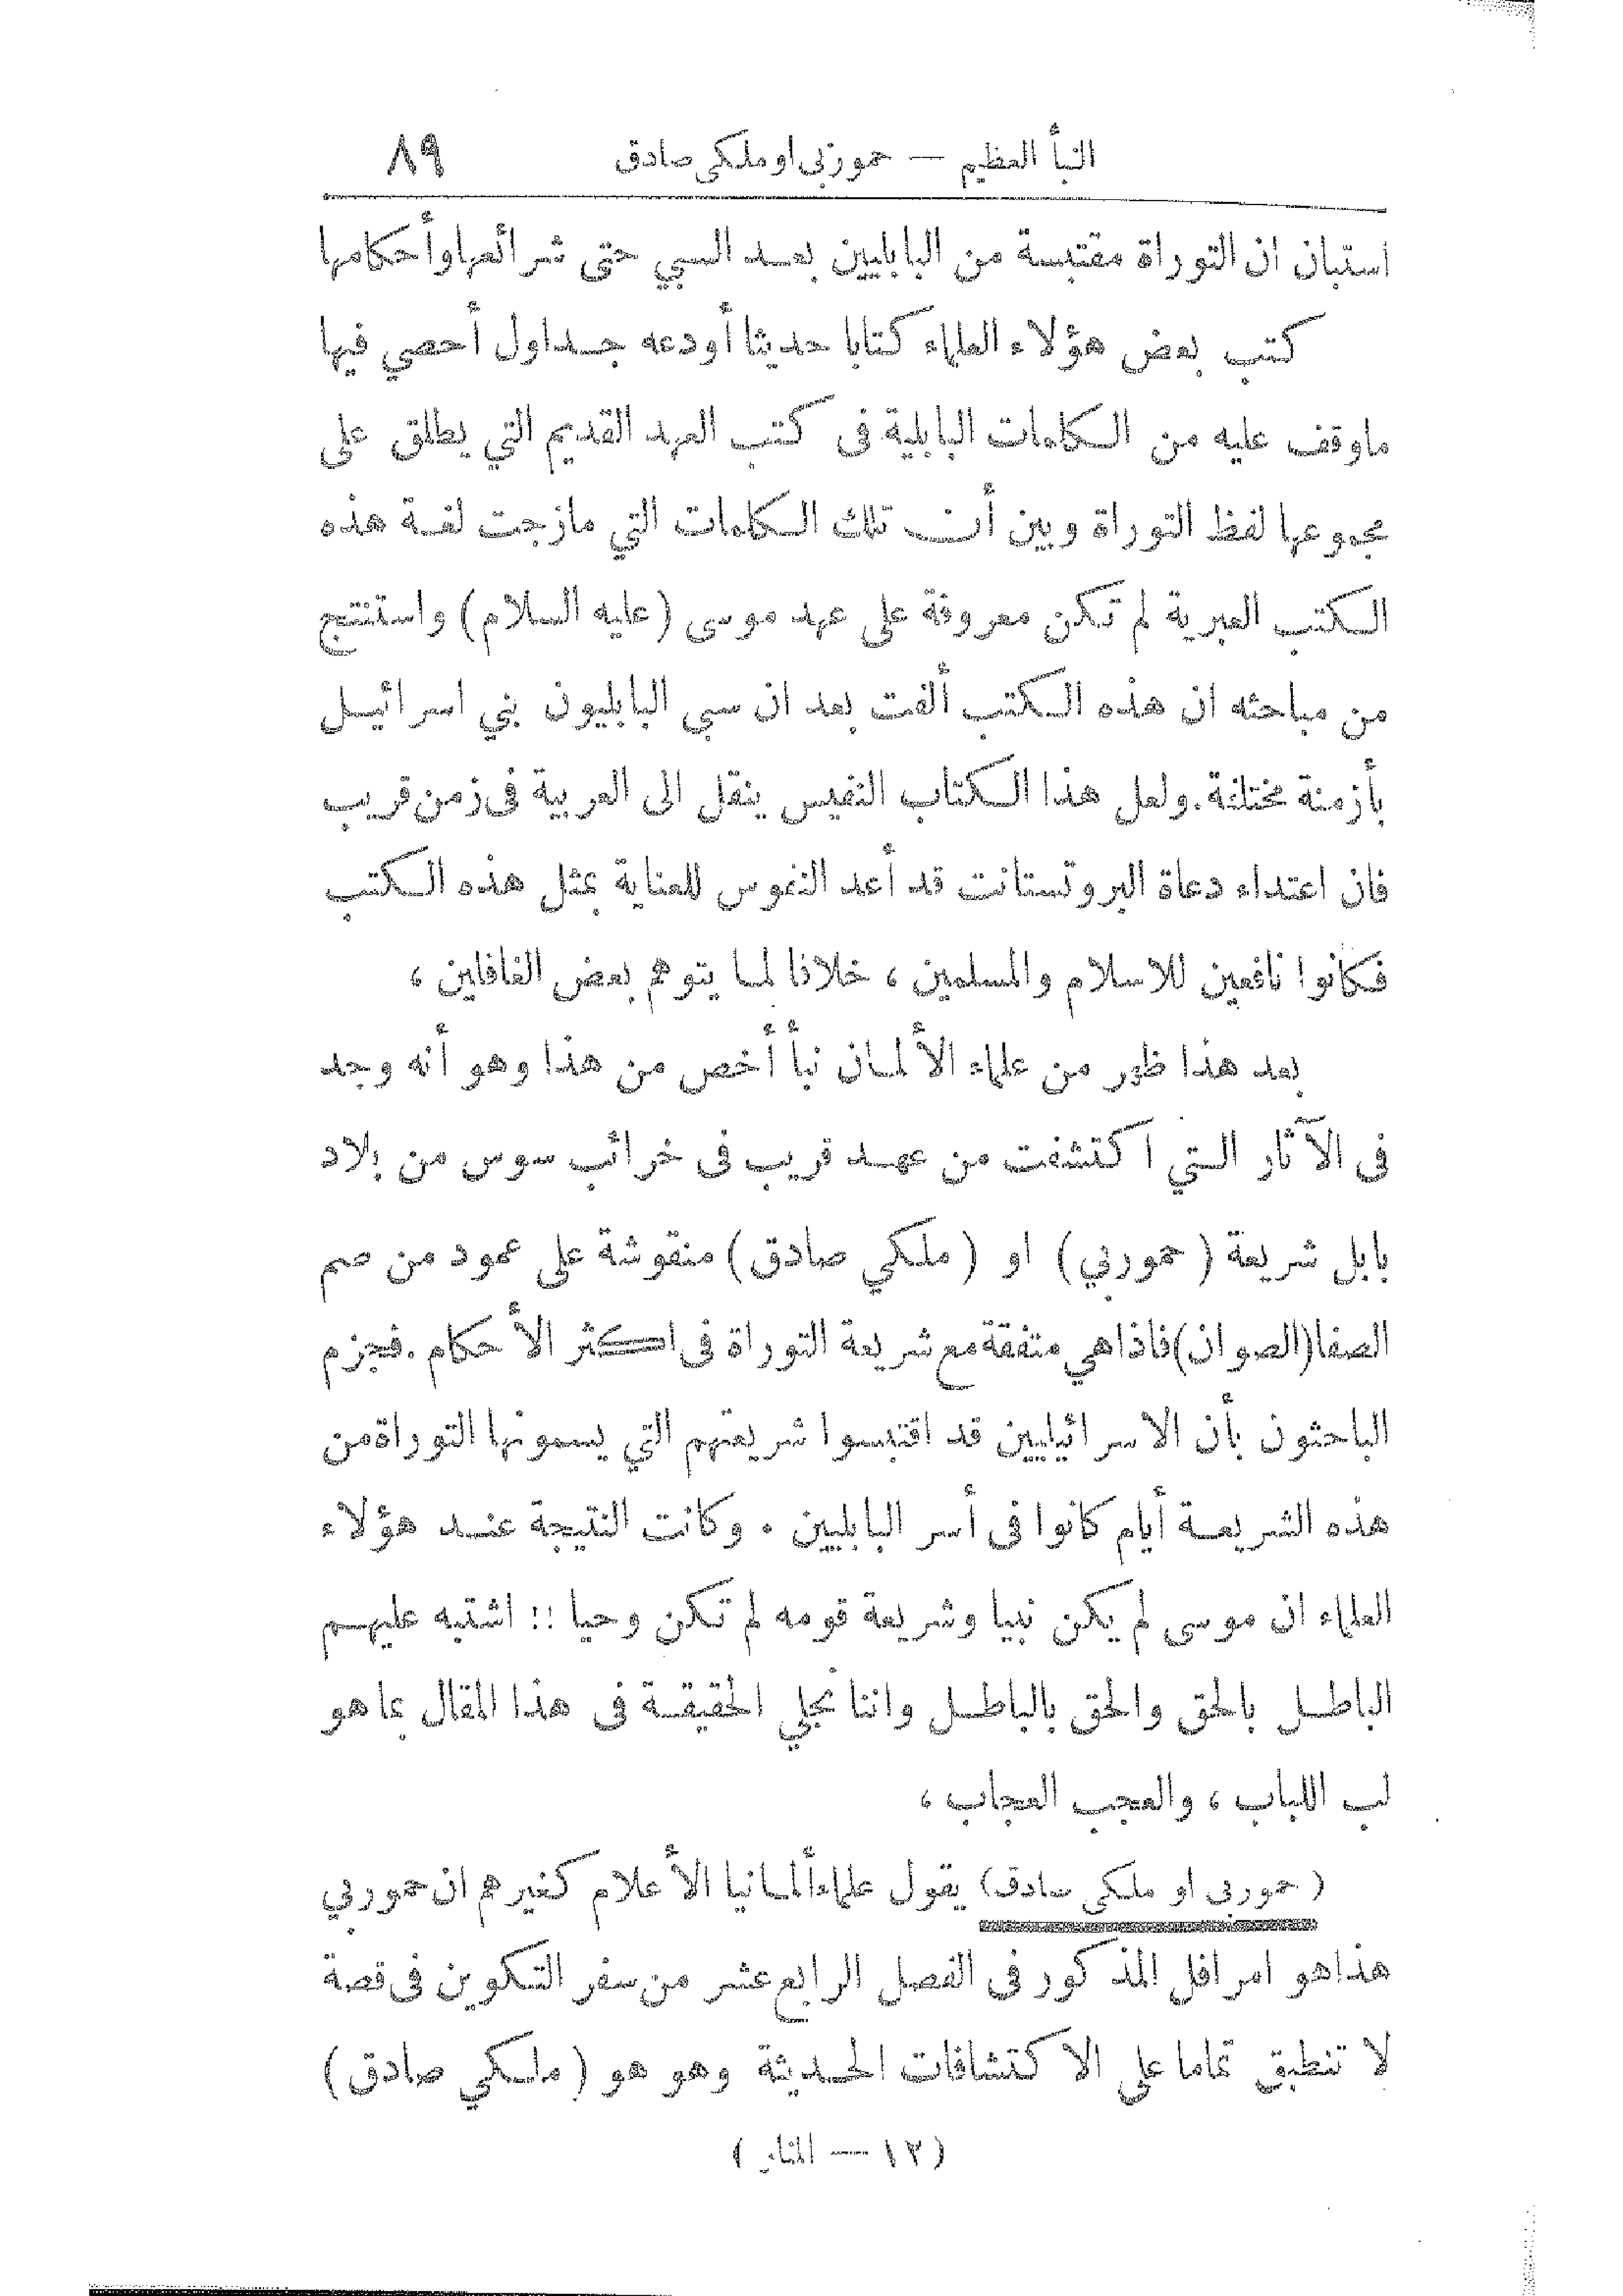 النبأ العظيم — حمورَبي او ملكي صادق ٨٩
استبان ان التوراة مقتبسة من البابليين بعد السبي حتى شرائعها وأحكامها
كتب بعض هؤلاء العلماء كتابا حديثا أودعه جداول أحصي فيها
ماوقف عليه من الكلمات البابلية في كتب العهد القديم التي يطلق على
مجموعها لفظ التوراة وبين أن تلك الكلمات التي مازجت لغة هذه
الكتب العبرية لم تكن معروفة على عهد موسى (عليه السلام) واستنتج
من مباحثه ان هذه الكتب ألفت بعد ان سبى البابليون بني اسرائيل
بأزمنة مختلفة . ولعل هذا الكتاب النفيس ينقل الى العربية في زمن قريب
فان اعتداء دعاة البروتستانت قد أعد النفوس للعناية بمثل هذه الكتب
فكانوا نافعين للاسلام والمسلمين ، خلافا لما يتوهم بعض الغافلين ،
بعد هذا ظهر من علماء الألمان نبأ أخص من هذا وهو أنه وجد
في الآثار التي اكتشفت من عهد قريب في خرائب سوس من بلاد
بابل شريعة ( حموربي ) او ( ملكي صادق ) منقوشة على عمود من صم
الصفا (الصوان) فاذا هي متفقة مع شريعة التوراة في اكثر الأحكام . فجزم
الباحثون بأن الاسرائيليين قد اقتبسوا شريعتهم التي يسمونها التوراة من
هذه الشريعة أيام كانوا في أسر البابليين . وكانت النتيجة عند هؤلاء
العلماء ان موسى لم يكن نبيا وشريعة قومه لم تكن وحيا !! اشتبه عليهم
الباطل بالحق والحق بالباطل واننا نجلي الحقيقة في هذا المقال بما هو
لب اللباب ، والعجب العجاب ،
( حموربي او ملكي صادق ) يقول علماء ألمانيا الأعلام كغيرهم ان حموربي
هذا هو امرافل المذكور في الفصل الرابع عشر من سفر التكوين في قصة
لا تنطبق تماما على الاكتشافات الحديثة وهو هو ( ملكي صادق )
( ١٢ — المنار )